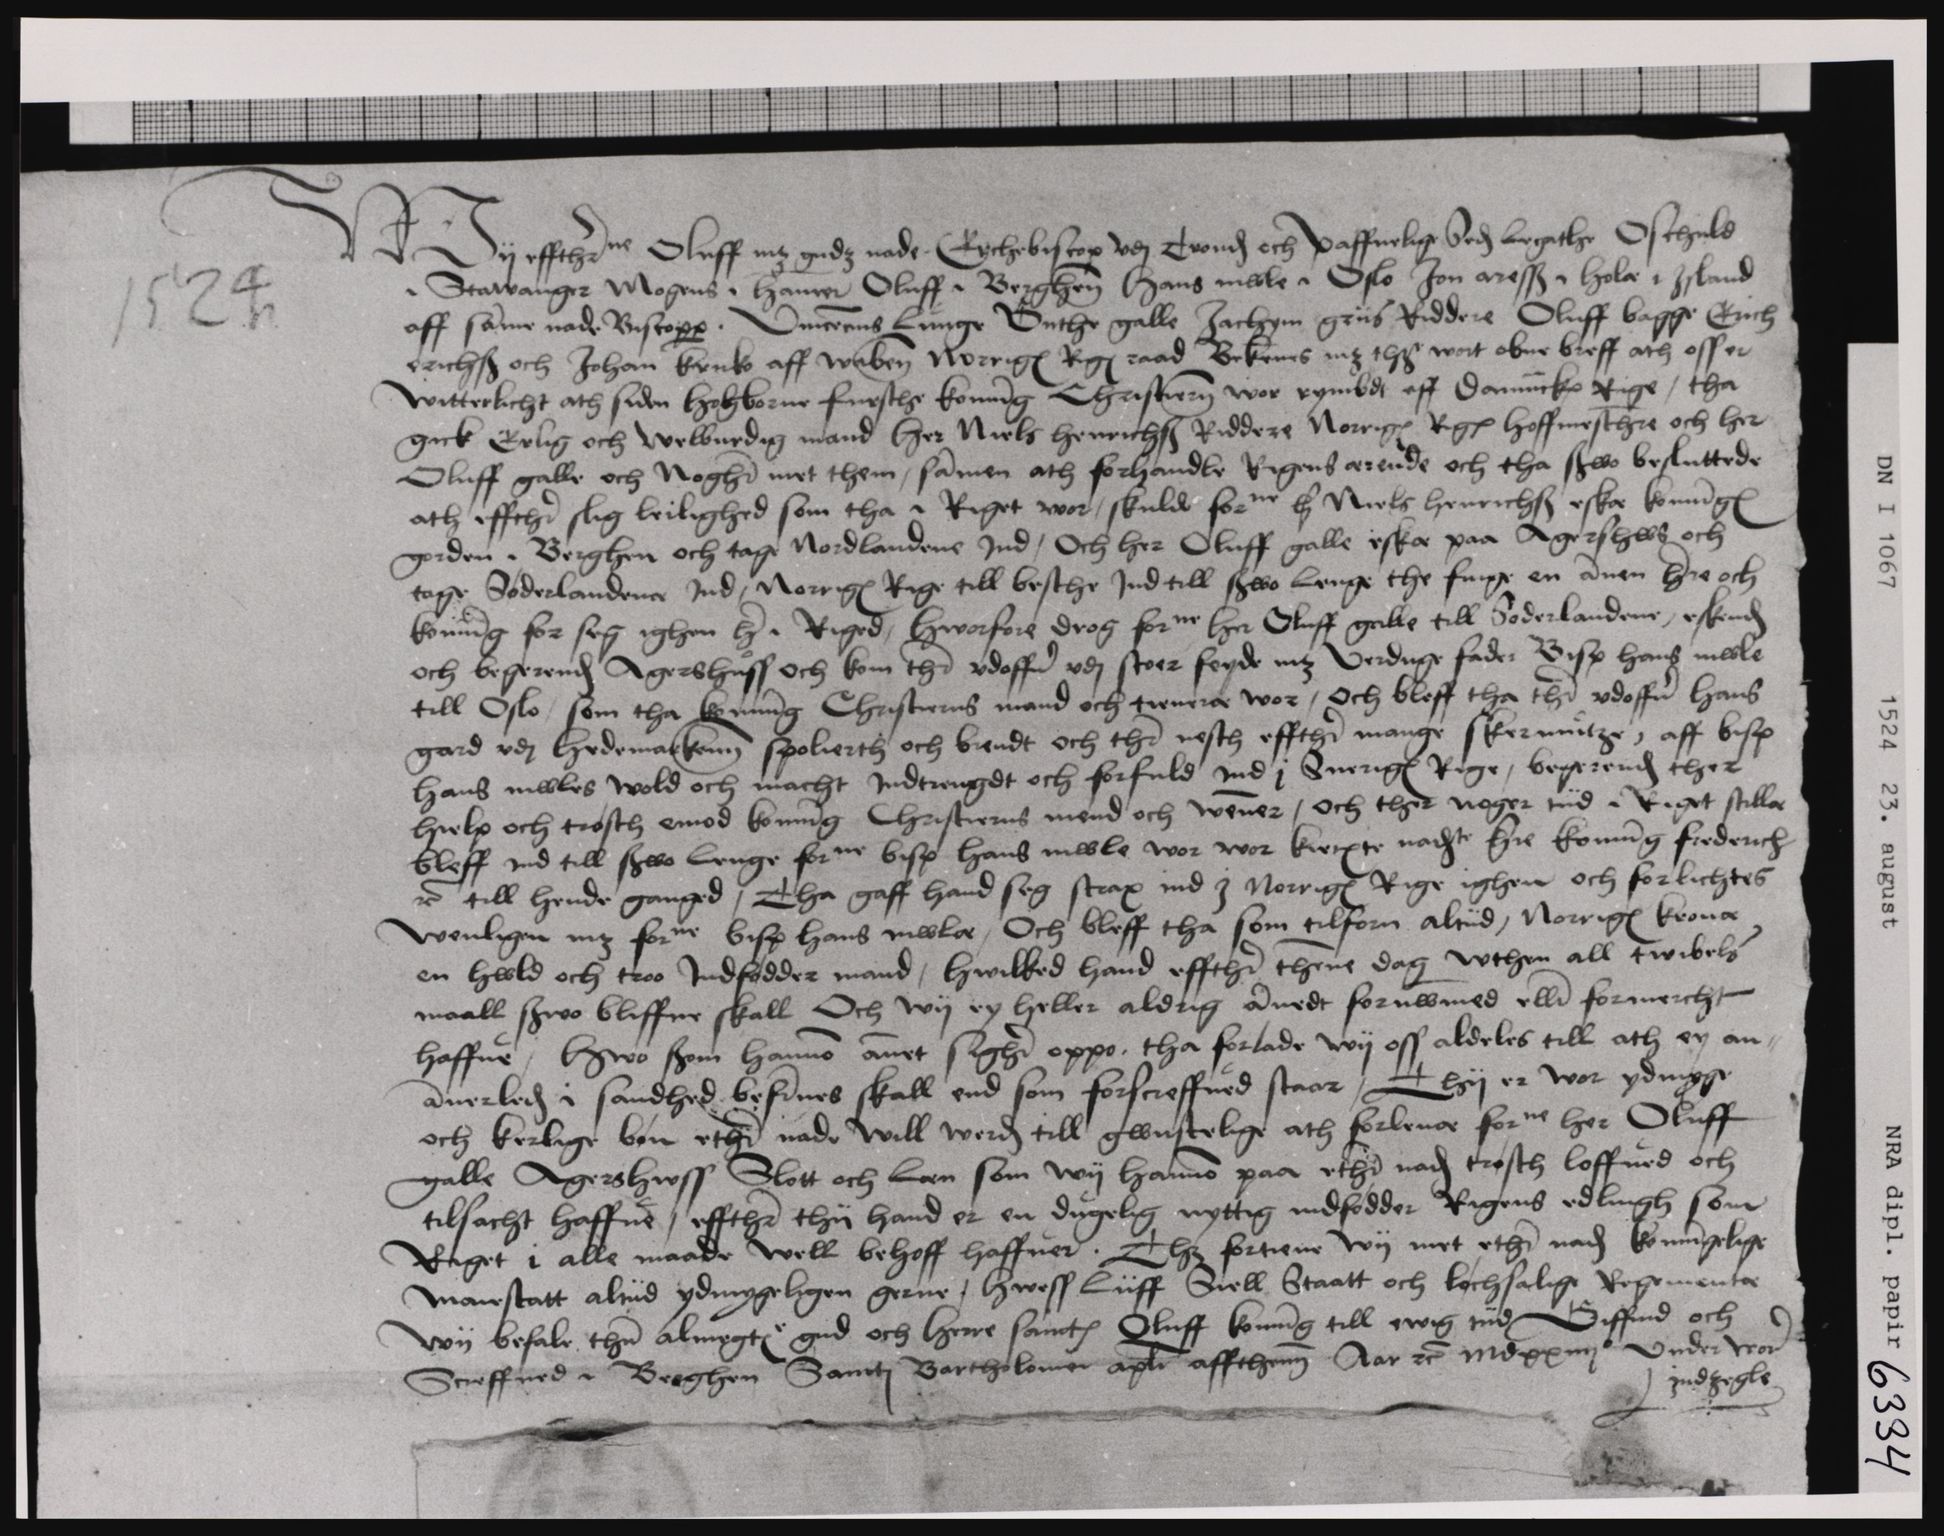 1524
Wij effthr̄ne Oluff mz gudz nade Erchebiscop vdj Trondh och Paffuelige Sedh Legathe Oschuld
i Stawanger Mogens i Hamer Oluff i Berghen Hans mwle i Oslo Jon aress i Hola i Jsland
aff sāme nade Biscopp. Vincēcius Lunge Guthe galle Jachym griis Riddere Oluff bagge Erich
erichss och Johan krukow aff waben Norrigs Rigs raad Bekenes mz thz wort obne breff ath oss er
witterlicht ath siden Hogborne furste konūg Christiern wor rymbdt aff Danmcks Rige, tha
gick Erlig och welburdig mand Her Niels henrichss Riddere Norrigs Rigs hoffmesthre och her
Oluff galle och Noghr̄ met them, sāmen ath forhandle Rigens ærende och tha sswo besluttede
ath effthr̄ slig leilighed som tha i Riget wor, skulde forne hr̄ Niels henrichss eska konūgs
gorden i Berghen och tage Nordlandene Jnd, Och her Oluff galle eska paa Agershws och
tage Søderlandena Jnd, Norrigs Rige till besthe Jnd till sswo lenge the finge en ānen hr̄e och
konūg for seg ighen hr̄ i Riged, Hworfore drog forne her Oluff galle till Søderlandene, eskendh
och begerendh Agershuss och kom thr̄ vdoffur̄ vdj stoer feyde mz Verduge fader Bisp hans mwle
till Oslo, som tha konūg Christierns mand och tienera wor, Och bleff tha thr̄ vdoffur̄ hans
gard vdj Hedemarkenn spolierth och brendt och thr̄ nesth effthr̄ mange skermutze, aff bisp
hans mwles wold och macht Jndtrengdt och forfuld Jnd j Suerigs Rige, begerendh ther
hielp och trøsth emod konūg Christierns mend och wenner, Och ther noger tiid i Riget stilla
bleff ind till sswo lenge forne bisp hans mwle wor wor kierxte nadste hr̄e konūg frederich
rc̄ till hende ganged, Tha gaff hand seg strax ind j Norrigs Rige ighen och forlichtes
wenligen mz forne bisp hans mwla, Och bleff tha som tilforn altiid, Norrigs krona
en hwld och troo Jndfødder mand, Hwilked hand effthr̄ thēne dag wthen all twibels
maall sswo bliffue skall Och wij ey heller aldrig ānedt fornwmed ellr̄ formercht
haffue, Hwo ssom hanno ānet sighr̄ oppo, tha forlade wij oss aldeles till ath ey an⸗
ānerledh i sandhed befīnes skall end som forscreffued staar, Thij er wor ydmyge
och kerlige bøn ethr̄ nade will werdh till gwnstelige ath forlena forne her Oluff
galle Agershwss Slott och Læn som wij hanno paa ethr̄ nadh trøsth loffued och
tilsacht haffue, effthr̄ thij hand er en dugelig nyttig indfødder Rigens edlingh som
Riget i alle maade well behoff haffuer. Thz fortiene wij met ethr̄ nadh konīngelige
maiestatt altiid ydmygeligen gerne, Hwess Liiff Siell Staatt och lychsalige Regementa
wij befale thn̄ almegtse gud och Herre sancts Oluff konūg till ewig tiid Giffuid och
Screffued i Berghen Sancti Bartholomei apl̄i affthenn Aar rc̄ mdxxiiijo Vnder wor
indzegle
DN I 1067 1524 23. august NRA dipl. papir 6334